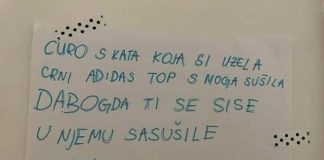 CURO S KATA KOJA SI UZELA
CRNI ADIDAS TOP S MOGA SUŠILA
DABOGDA TI SE SISE
U NJEMU SASUŠILE